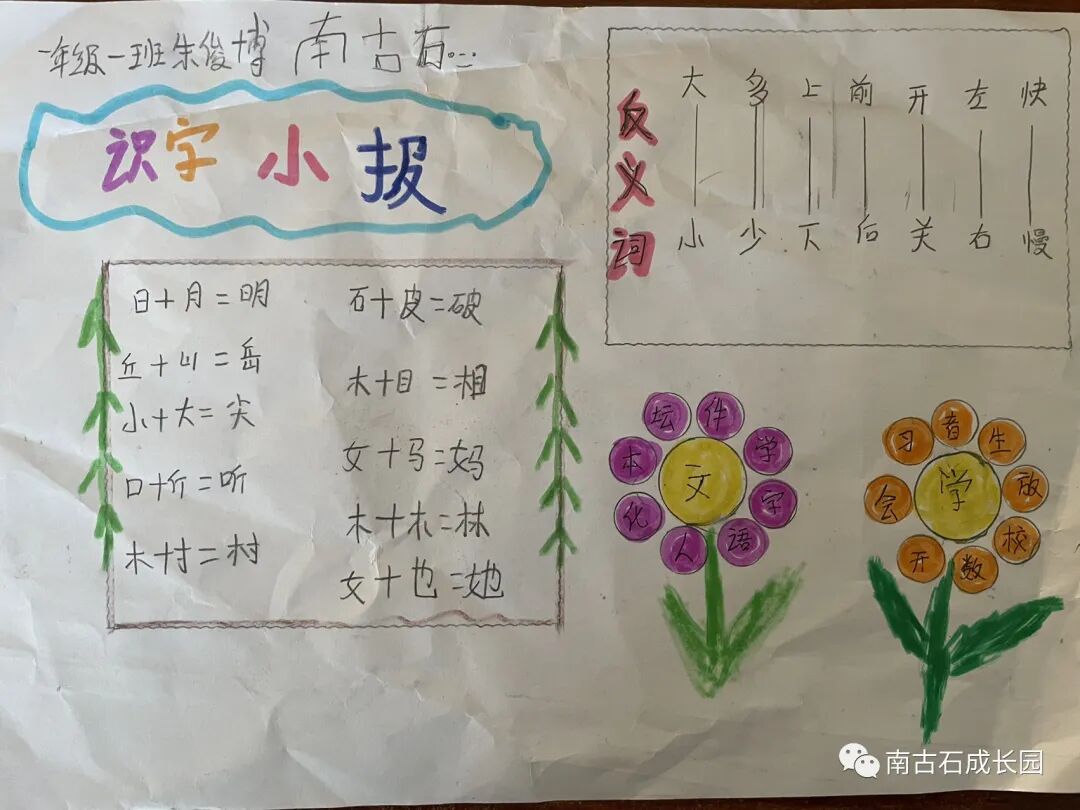 一年级一班朱俊博 南古石...
识字小报
日+月=明
丘+山=岳
小+大=尖
口+斤=听
木+寸=村
石+皮=破
木+目=相
女+马=妈
木+木=林
女+也=她
反义词
大 多 上 前 开 左 快
小 少 下 后 关 右 慢
文
坛 件 学 字 语 人 化 本
学
习 者 生 放 校 数 开 会
南古石成长园